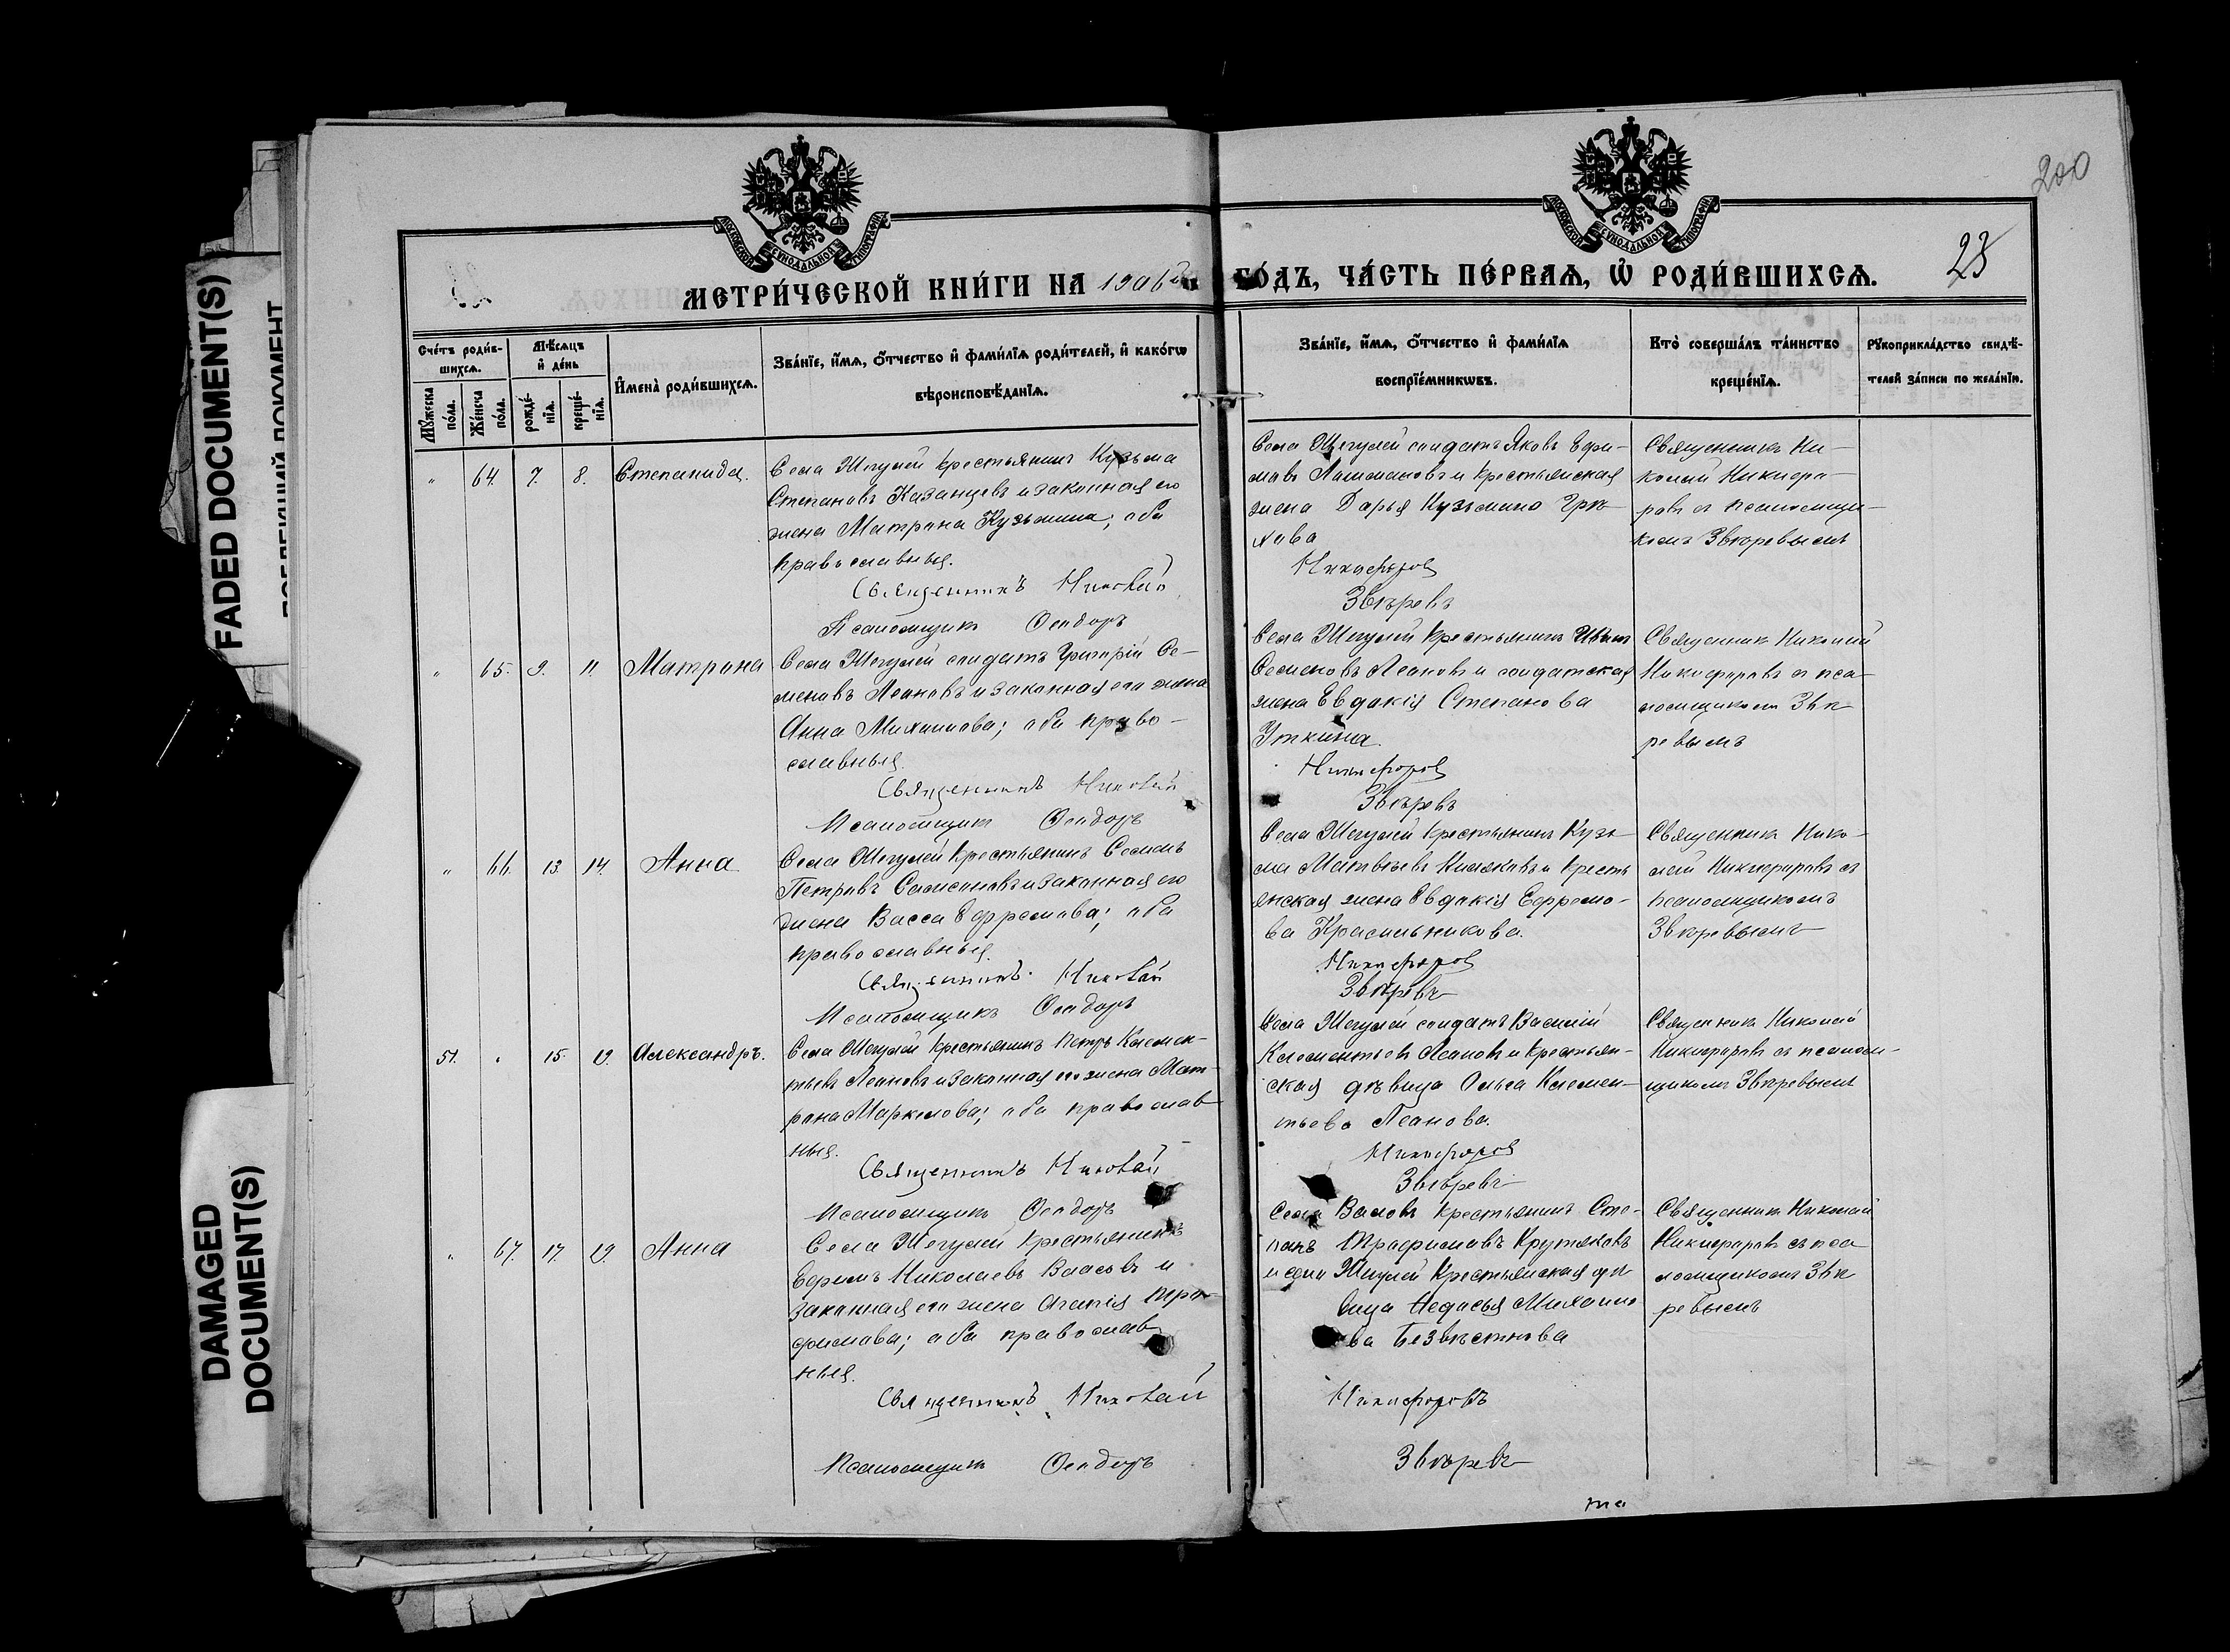 FADED DOCUMENT(S)
DAMAGED
DOCUMENT(S)
200
23
МОСКОВСКОЙ СУНОДАЛЬНОЙ ТИПОГРАФІИ
МОСКОВСКОЙ СУНОДАЛЬНОЙ ТИПОГРАФІИ
МЕТРИ́ЧЕСКОЙ КНИ́ГИ НА 1906й ГО́ДЪ, ЧА́СТЬ ПЕ́РВАѦ, Ѡ҆ РОДИ́ВШИХСѦ.
Сче́тъ роди́в-
шихсѧ.
Мꙋ́жеска по́ла.
Же́нска по́ла.
Мѣ́сѧцъ
и҆ де́нь
рожде́-
нїѧ.
креще́-
нїѧ.
И҆мена̀ роди́вшихсѧ.
Зва́нїе, и҆́мѧ, ѻ҆́тчество и҆ фами́лїѧ роди́телей, и҆ како́гѡ
вѣроисповѣ́данїѧ.
Зва́нїе, и҆́мѧ, ѻ҆́тчество и҆ фами́лїѧ
воспрїе́мникѡвъ.
Кто̀ соверша́лъ та́инство
креще́нїѧ.
Рꙋкоприкла́дство свидѣ́-
телей за́писи по жела́нїю.
" 64. 7. 8. Степанида.
Села Жегулей крестьянинъ Кузьма
Степановъ Казанцевъ и законная его
жена Матрона Кузьмина; оба
православныя.
Священникъ Николай
Псаломщикъ Ѳеодоръ
Села Жегулей солдатъ Яковъ Ефи-
мовъ и крестьянская
жена Дарья Кузьмина
Никифоровъ
Звѣревъ
Священникъ Ни-
колай Никифо-
ровъ съ псаломщи-
комъ Звѣревымъ
" 65. 9. 11. Матрона
Села Жегулей солдатъ Григорій Се-
меновъ Леоновъ и законная его жена
Анна Михаилова; оба право-
славныя.
Священникъ Николай
Псаломщикъ Ѳеодоръ
Села Жегулей крестьянинъ
Семеновъ Леоновъ и солдатская
жена Евдокія Степанова
Уткина.
Никифоровъ
Звѣревъ
Священникъ Николай
Никифоровъ съ пса-
ломщикомъ Звѣ-
ревымъ
" 66. 13. 14. Анна
Села Жегулей крестьянинъ Семенъ
Петровъ и законная его
жена Васса Ефремова; оба
православныя.
Священникъ Николай
Псаломщикъ Ѳеодоръ
Села Жегулей крестьянинъ Кузь-
ма Матвѣевъ и кресть-
янская жена Евдокія Ефремо-
ва Красильникова.
Никифоровъ
Звѣревъ
Священникъ Нико-
лай Никифоровъ съ
псаломщикомъ
Звѣревымъ
51. " 15. 19. Александръ.
Села Жегулей крестьянинъ Петръ Клемен-
тьевъ Леоновъ и законная его жена Мат-
рона Маркелова; оба православ-
ныя.
Священникъ Николай
Псаломщикъ Ѳеодоръ
Села Жегулей солдатъ Василій
Клементьевъ Леоновъ и крестьян-
ская дѣвица Ольга Клемен-
тьева Леонова.
Никифоровъ
Звѣревъ
Священникъ Николай
Никифоровъ съ псалом-
щикомъ Звѣревымъ
" 67. 17. 19. Анна
Села Жегулей крестьянинъ
Ефимъ Николаевъ Власовъ и
законная его жена Агапія Тро-
фимова; оба православ-
ныя.
Священникъ Николай
Псаломщикъ Ѳеодоръ
Села Валовъ крестьянинъ Сте-
панъ Трофимовъ Крутяковъ
и села Жегулей крестьянская дѣ-
вица Ѳедосья Михаило-
ва Безвѣстнова
Никифоровъ
Звѣревъ
Священникъ Николай
Никифоровъ съ пса-
ломщикомъ Звѣ-
ревымъ